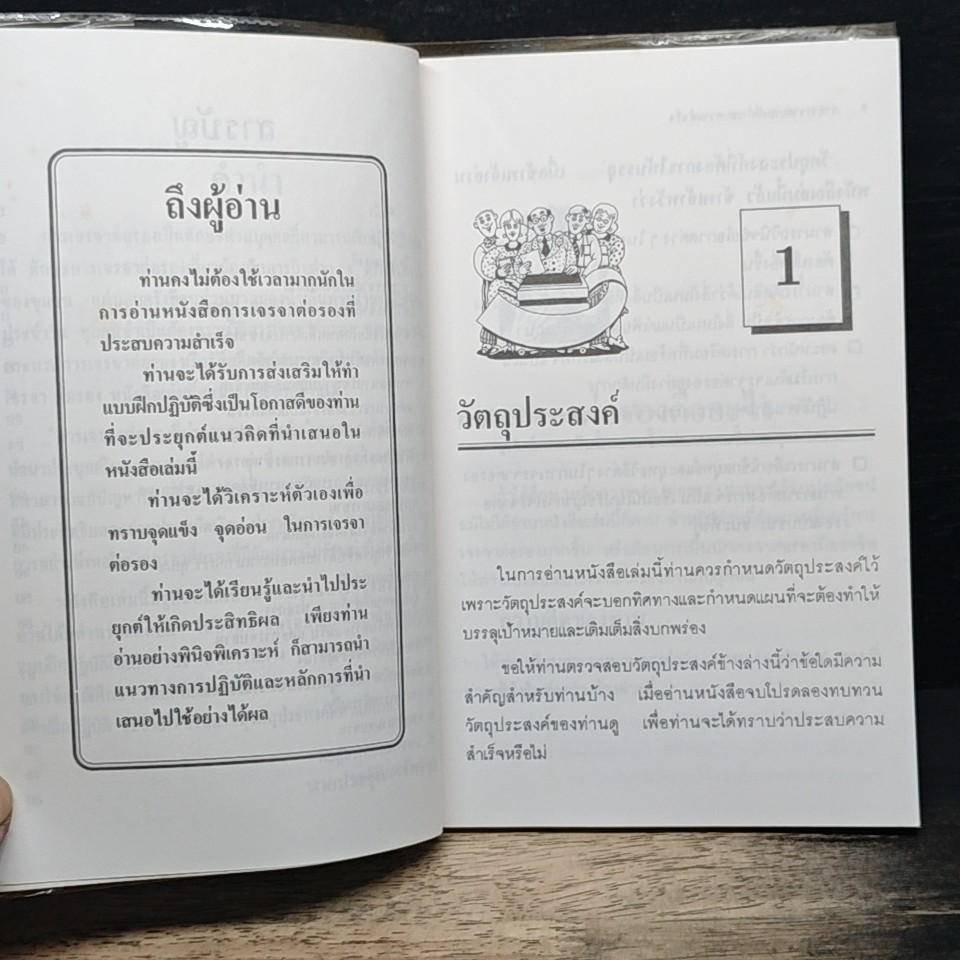 ถึงผู้อ่าน
ท่านคงไม่ต้องใช้เวลามากนักใน
การอ่านหนังสือการเจรจาต่อรองที่
ประสบความสำเร็จ
ท่านจะได้รับการส่งเสริมให้ทำ
แบบฝึกปฏิบัติซึ่งเป็นโอกาสดีของท่าน
ที่จะประยุกต์แนวคิดที่นำเสนอใน
หนังสือเล่มนี้
ท่านจะได้วิเคราะห์ตัวเองเพื่อ
ทราบจุดแข็ง จุดอ่อน ในการเจรจา
ต่อรอง
ท่านจะได้เรียนรู้และนำไปประ
ยุกต์ให้เกิดประสิทธิผล เพียงท่าน
อ่านอย่างพินิจพิเคราะห์ ก็สามารถนำ
แนวทางการปฏิบัติและหลักการที่นำ
เสนอไปใช้อย่างได้ผล
1
วัตถุประสงค์
ในการอ่านหนังสือเล่มนี้ท่านควรกำหนดวัตถุประสงค์ไว้
เพราะวัตถุประสงค์จะบอกทิศทางและกำหนดแผนที่จะต้องทำให้
บรรลุเป้าหมายและเติมเต็มสิ่งบกพร่อง
ขอให้ท่านตรวจสอบวัตถุประสงค์ข้างล่างนี้ว่าข้อใดมีความ
สำคัญสำหรับท่านบ้าง เมื่ออ่านหนังสือจบโปรดลองทบทวน
วัตถุประสงค์ของท่านดู เพื่อท่านจะได้ทราบว่าประสบความ
สำเร็จหรือไม่